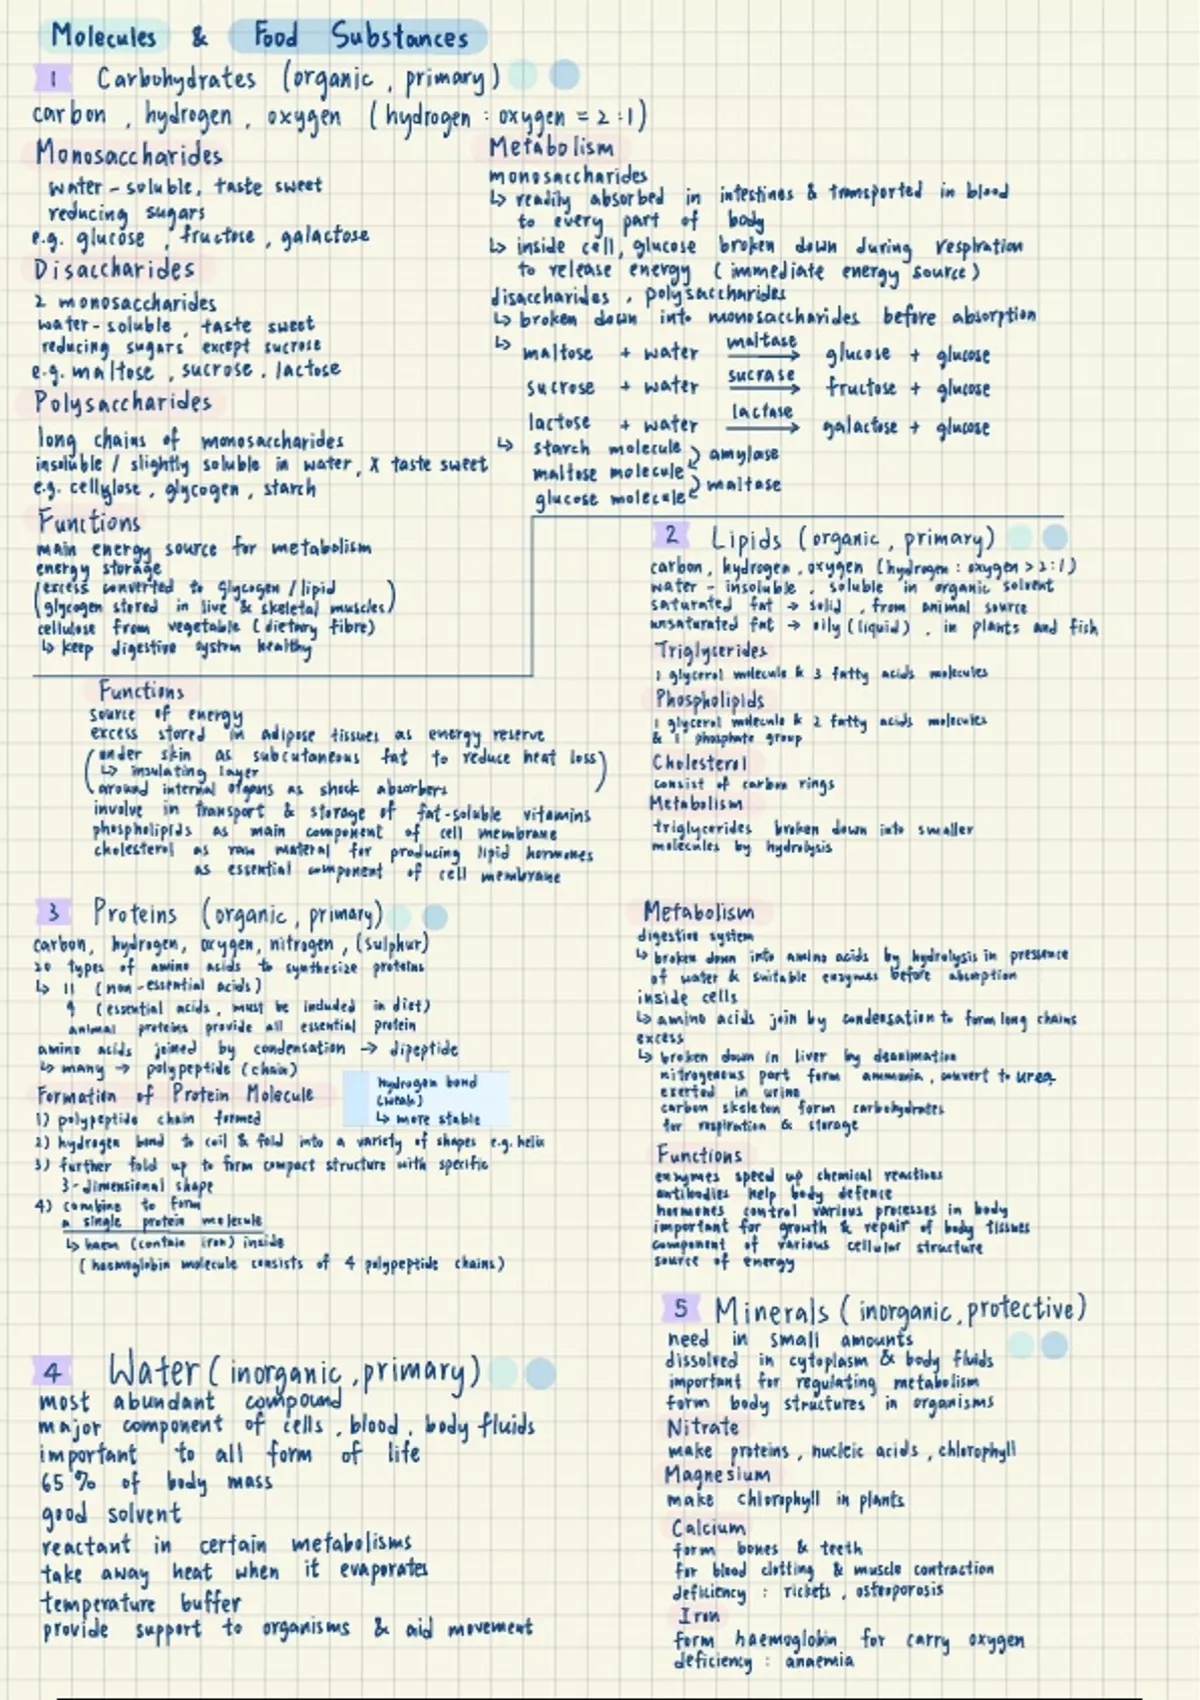 Molecules & Food Substances
1 Carbohydrates (organic, primary)
carbon, hydrogen, oxygen (hydrogen : oxygen = 2:1)
Monosaccharides
water-soluble, taste sweet
reducing sugars
e.g. glucose, fructose, galactose
Disaccharides
2 monosaccharides
water-soluble, taste sweet
reducing sugars except sucrose
e.g. maltose, sucrose, lactose
Polysaccharides
long chains of monosaccharides
insoluble / slightly soluble in water, X taste sweet
e.g. cellylose, glycogen, starch
Functions
main energy source for metabolism
energy storage
(excess converted to glycogen / lipid
glycogen stored in live & skeletal muscles)
cellulose from vegetable (dietary fibre)
↳ keep digestive system healthy
Metabolism
monosaccharides
↳ readily absorbed in intestines & transported in blood
to every part of body
↳ inside cell, glucose broken down during respiration
to release energy (immediate energy source)
disaccharides, polysaccharides
↳ broken down into monosaccharides before absorption
↳ maltose + water maltase → glucose + glucose
sucrose + water sucrase → fructose + glucose
lactose + water lactase → galactose + glucose
↳ starch molecule
amylase
maltose molecule
maltase
glucose molecule
2 Lipids (organic, primary)
carbon, hydrogen, oxygen (hydrogen : oxygen > 2:1)
water-insoluble, soluble in organic solvent
saturated fat → solid, from animal source
unsaturated fat → oily (liquid), in plants and fish
Triglycerides
1 glycerol molecule & 3 fatty acids molecules
Phospholipids
1 glycerol molecule & 2 fatty acids molecules
& 1 phosphate group
Cholesterol
consist of carbon rings
Metabolism
triglycerides broken down into smaller
molecules by hydrolysis
Functions
source of energy
excess stored in adipose tissues as energy reserve
(under skin as subcutaneous fat to reduce heat loss
↳ insulating layer
around internal organs as shock absorbers)
involve in transport & storage of fat-soluble vitamins
phospholipids as main component of cell membrane
cholesterol as raw materal for producing lipid hormones
as essential component of cell membrane
3 Proteins (organic, primary)
carbon, hydrogen, oxygen, nitrogen, (sulphur)
20 types of amino acids to synthesize proteins
↳ 11 (non-essential acids)
9 (essential acids, must be included in diet)
animal proteins provide all essential protein
amino acids joined by condensation → dipeptide
↳ many → polypeptide (chain)
Formation of Protein Molecule
hydrogen bond
(weak)
↳ more stable
1) polypeptide chain formed
2) hydrogen bond to coil & fold into a variety of shapes e.g. helix
3) further fold up to form compact structure with specific
3-dimensional shape
4) combine to form
a single protein molecule
↳ haem (contain iron) inside
(haemoglobin molecule consists of 4 polypeptide chains)
Metabolism
digestive system
↳ broken down into amino acids by hydrolysis in pressence
of water & suitable enzymes before absorption
inside cells
↳ amino acids join by condensation to form long chains
excess
↳ broken down in liver by deanimation
nitrogenous part form ammonia, convert to urea
exerted in urine
carbon skeleton form carbohydrates
for respiration & storage
Functions
enzymes speed up chemical reactions
antibodies help body defence
hormones control various processes in body
important for growth & repair of body tissues
component of various cellular structure
source of energy
4 Water (inorganic, primary)
most abundant compound
major component of cells, blood, body fluids
important to all form of life
65% of body mass
good solvent
reactant in certain metabolisms
take away heat when it evaporates
temperature buffer
provide support to organisms & aid movement
5 Minerals (inorganic, protective)
need in small amounts
dissolved in cytoplasm & body fluids
important for regulating metabolism
form body structures in organisms
Nitrate
make proteins, nucleic acids, chlorophyll
Magnesium
make chlorophyll in plants
Calcium
form bones & teeth
for blood clotting & muscle contraction
deficiency : rickets, osteoporosis
Iron
form haemoglobin for carry oxygen
deficiency : anaemia